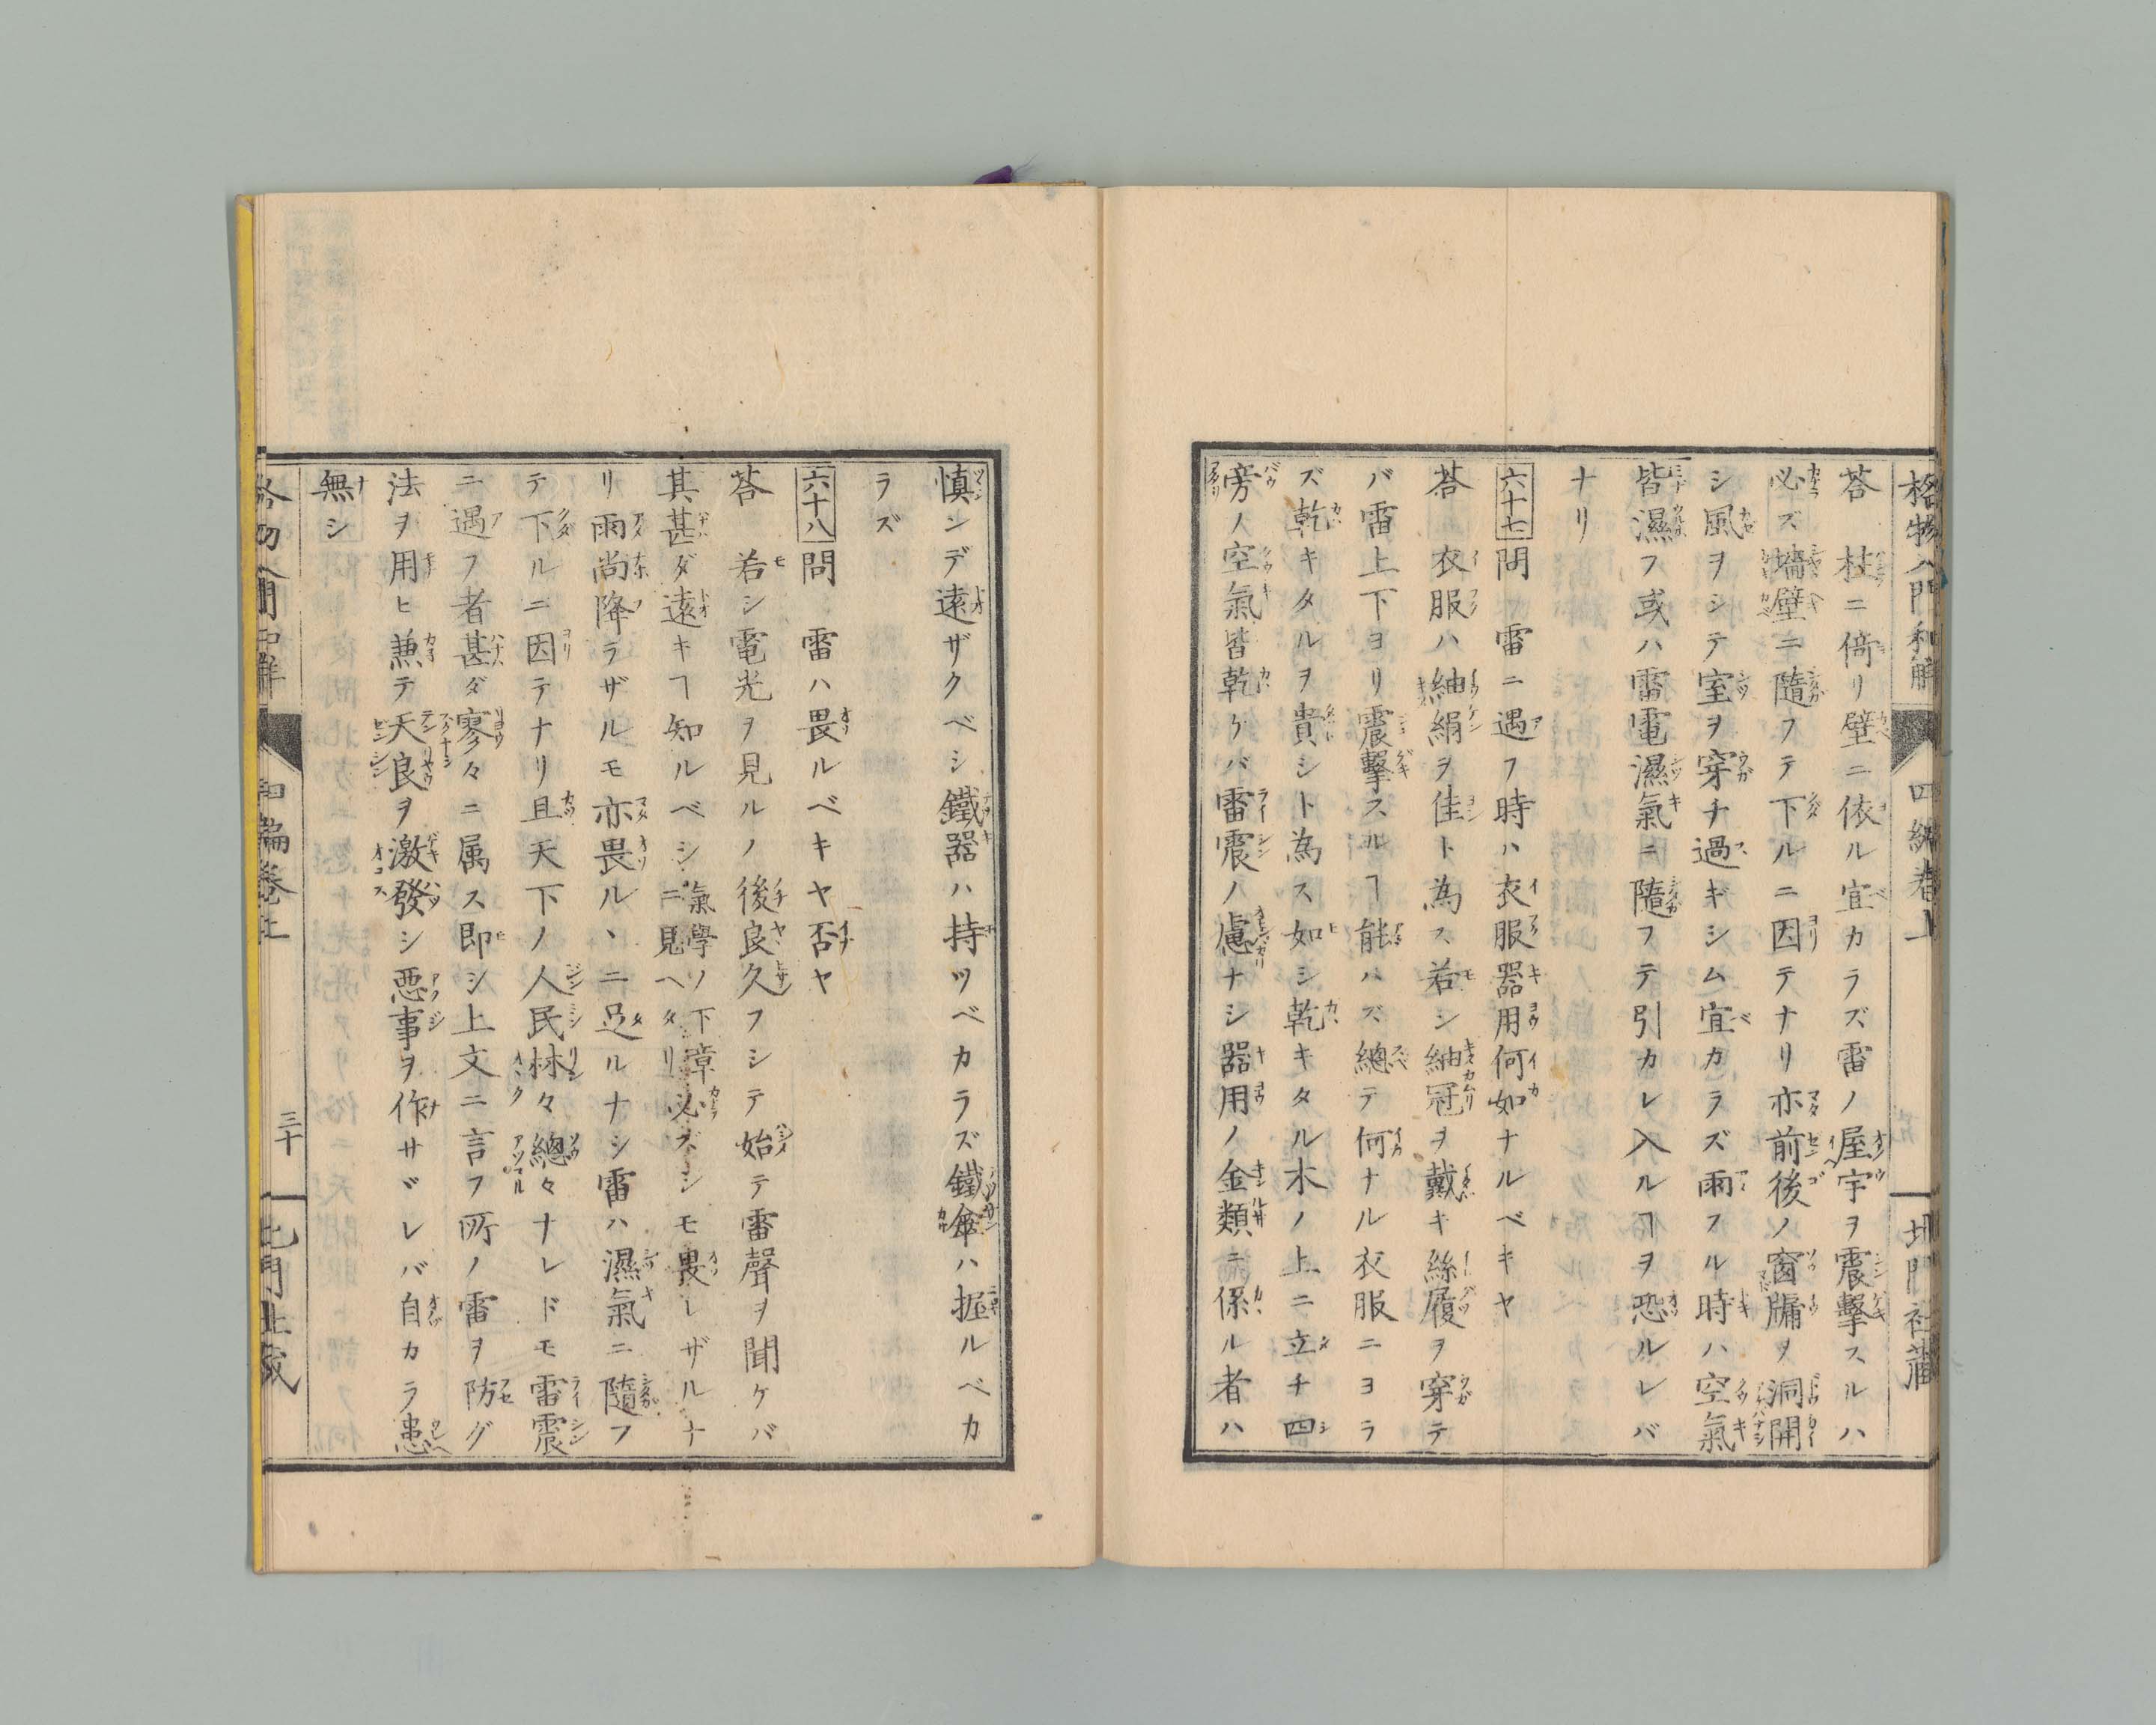 格物入門和解 四編卷上 北門社藏
荅 柱ニ倚リ壁ニ依ル宜カラズ雷ノ屋宇ヲ震擊スルハ
必ズ墻壁ニ隨フテ下ルニ因テナリ亦前後ノ窗牖ヲ洞開
シ風ヲシテ室ヲ穿チ過ギシム宜カラズ雨フル時ハ空氣
皆濕フ或ハ雷電濕氣ニ隨フテ引カレ入ルヿヲ恐ルレバ
ナリ
六十七問 雷ニ遇フ時ハ衣服器用何如ナルベキヤ
荅 衣服ハ紬絹ヲ佳ト為ス若シ紬冠ヲ戴キ絲履ヲ穿テ
バ雷上下ヨリ震擊スルヿ能ハズ總テ何ナル衣服ニヨラ
ズ乾キタルヲ貴シト為ス如シ乾キタル木ノ上ニ立チ四
旁ノ空氣皆乾ケバ雷震ノ慮ナシ器用ノ金類ニ係ル者ハ
慎ンデ遠ザクベシ鐵器ハ持ツベカラズ鐵傘ハ握ルベカ
ラズ
六十八問 雷ハ畏ルベキヤ否ヤ
荅 若シ電光ヲ見ルノ後良久フシテ始テ雷聲ヲ聞ケバ
其甚ダ遠キヿ知ルベシ氣學ノ下章ニ見ヘタリ必ズシモ畏レザルナ
リ雨尚降ラザルモ亦畏ルヽニ足ルナシ雷ハ濕氣ニ隨フ
テ下ルニ因テナリ且天下ノ人民林々總々ナレドモ雷震
ニ遇フ者甚ダ寥々ニ属ス即シ上文ニ言フ所ノ雷ヲ防グ
法ヲ用ヒ兼テ天良ヲ激發シ惡事ヲ作サヾレバ自カラ患
無シ
三十